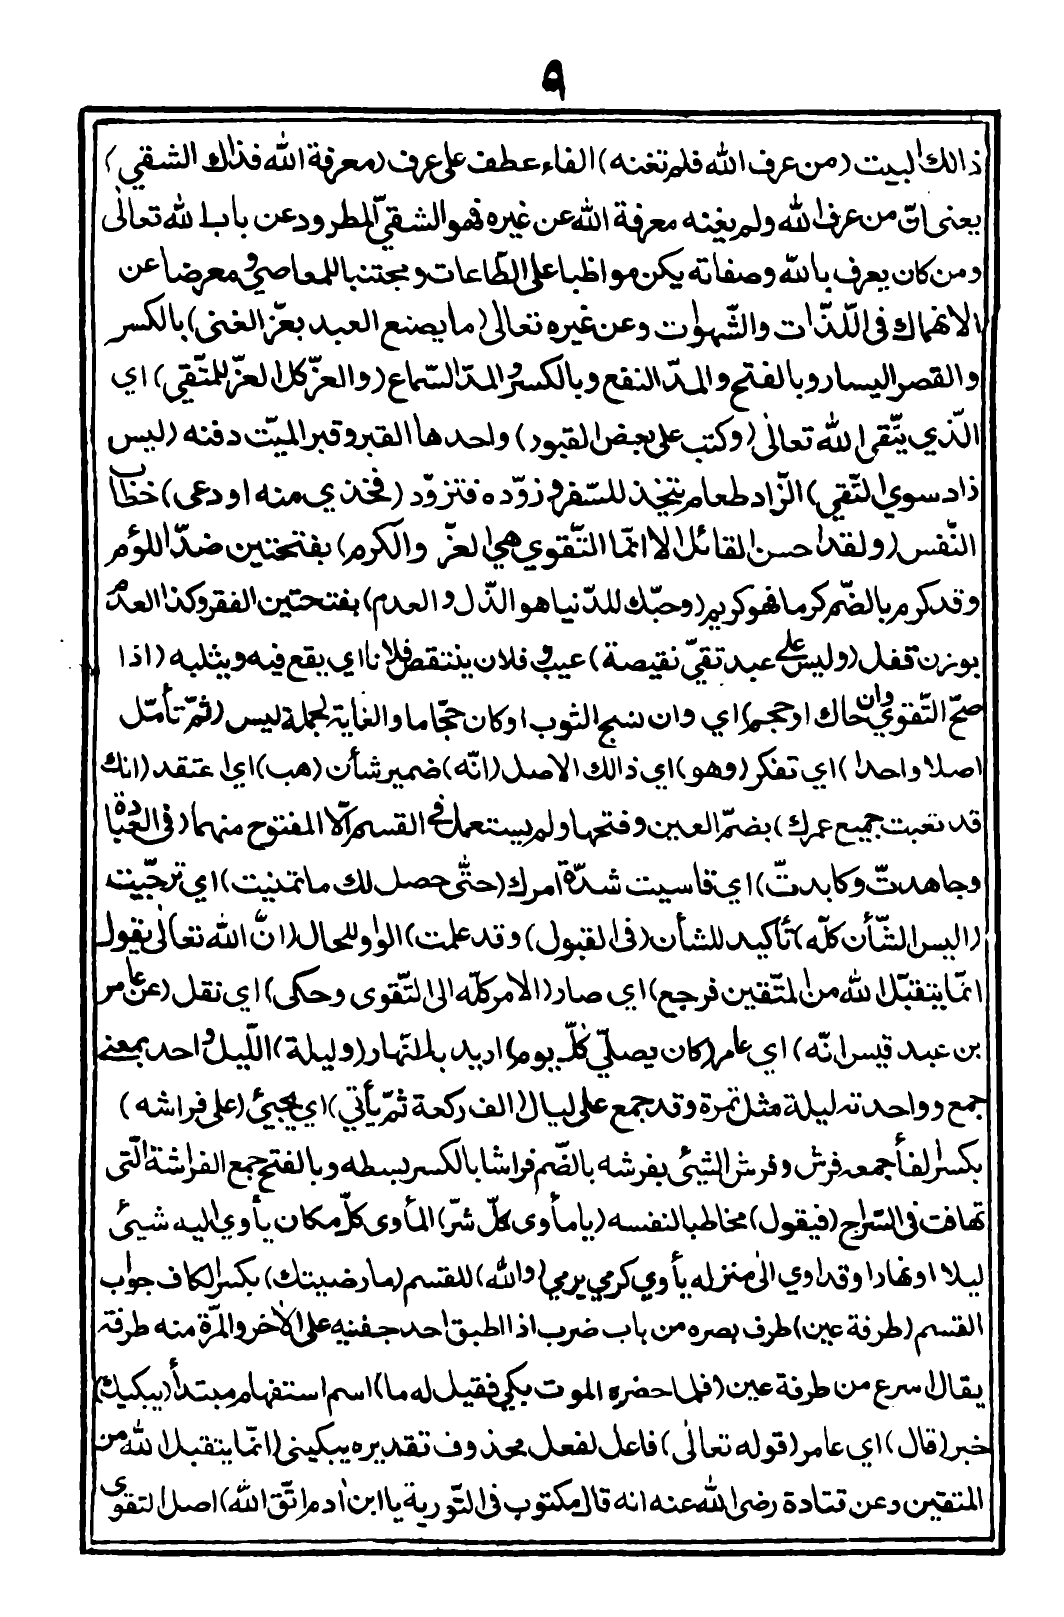 ٩
ذالك البيت (من عرف الله فلم تغنه) الفاء عطف على عرف (معرفة الله فذاك الشقي)
يعنى انّ من عرف الله ولم يغنه معرفة الله عن غيره فهو الشقيّ المطرود عن باب الله تعالى
ومن كان يعرف بالله وصفاته يكن مواظبا على الطّاعات ومجتنبا للمعاصي ومعرضا عن
الانهماك فى اللّذات والشّهوات وعن غيره تعالى (ما يصنع العبد بعزّ الغنى) بالكسر
والقصر اليسار وبالفتح والمدّ النفع وبالكسر والمدّ السّماع (والعزّ كل العزّ للمتّقي) اي
الّذي يتّقى الله تعالى (وكتب على بعض القبور) واحدها القبر وقبر الميّت دفنه (ليس
زاد سوي التّقي) الزّاد طعام يتّخذ للسّفر وزوّده فتزوّد (فخذي منه او دعى) خطاب
النّفس (ولقد احسن القائل الا انمّا التّقوي هي العزّ والكرم) بفتحتين ضدّ اللؤم
وقد كرم بالضّم كرما فهو كريم (وحبّك للدّنيا هو الذّل والعدم) بفتحتين الفقر وكذا العدم
بوزن قفل (وليس على عبد تقيّ نقيصة) عيب وفلان ينتقص فلانا اي يقع فيه ويثلبه (اذا
صحّ التّقوي وان حاك او حجم) اي وان نسج الثوب او كان حجّاما والغاية لجملة ليس (ثمّ تأمّل
اصلا واحدا) اي تفكر (وهو) اي ذالك الاصل (انّه) ضمير شأن (هب) اي اعتقد (انك
قد تعبت جميع عمرك) بضمّ العين وفتحها ولم يستعمل فى القسم الّا المفتوح منهما (فى العبادة
وجاهدتّ وكابدتّ) اي قاسيت شدّة امرك (حتّى حصل لك ما تمنيت) اي ترجّيت
(اليس الشّأن كلّه) تأكيد للشأن (فى القبول) وقد علمت) الواو للحال (انّ الله تعالى يقول
انمّا يتقبّل الله من المتّقين فرجع) اي صار (الامر كلّه الى التّقوى وحكى) اي نقل (عن عامر
بن عبد قيس انّه) اي عامر (كان يصلّي كلّ يوم) اريد بالنّهار (وليلة) اللّيل واحد بمعنى
جمع وواحدته ليلة مثل تمرة وقد جمع على ليال (الف ركعة ثمّ يأتي) اي يجيئ (على فراشه)
بكسر الفاء جمعه فرش وفرش الشيئ يفرشه بالضّم فراشا بالكسر بسطه وبالفتح جمع الفراشة الّتى
تهافت فى السّراج (فيقول) مخاطبا لنفسه (يا مأوى كلّ شرّ) المأوى كلّ مكان يأوي اليه شيئ
ليلا او نهارا وقد اوي الى منزله يأوي كرمي يرمي (والله) للقسم (ما رضيتك) بكسر الكاف جواب
القسم (طرفة عين) طرف بصره من باب ضرب اذا اطبق احد جفنيه على الأخر والمّرة منه طرفة
يقال اسرع من طرفة عين (فلما حضره الموت بكي فقيل له ما) اسم استفهام مبتدأ (يبكيك)
خبر (قال) اي عامر (قوله تعالى) فاعل لفعل محذوف تقديره يبكينى (انمّا يتقبل الله من
المتقين وعن قتادة رضى الله عنه انه قال مكتوب فى التّورية يا ابن أدم اتّق الله) اصل التقوى